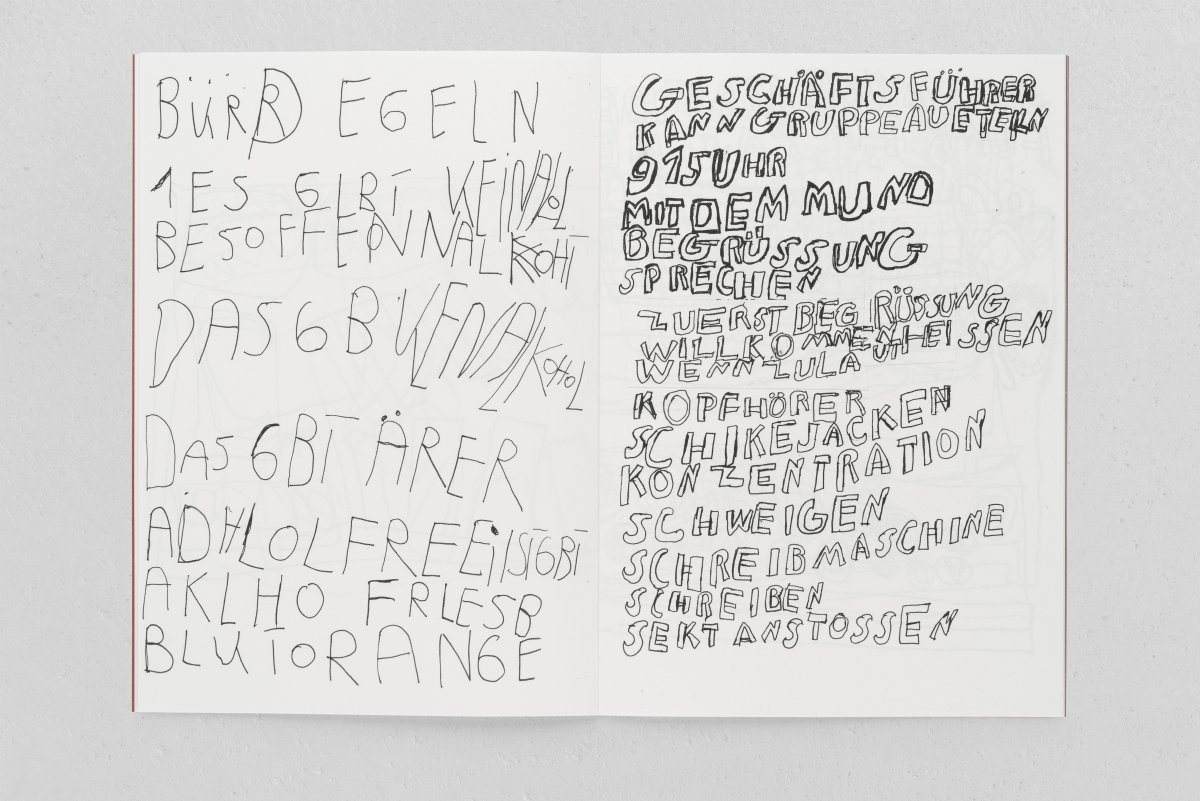 BÜRR EGELN
1ES GIRT KEINAL
BESOFFEN NAL KOHT
DAS GB KENAL KOHOL
DAS GBT ÄRER
ADHLOLFREEIISTGBT
AKLHO FRLESB
BLUTORANGE
GESCHÄFTSFÜHRER
KANN GRUPPEAUETEILN
915UHR
MIT DEM MUND
BEGRÜSSUNG
SPRECHEN
ZUERST BEGIRÜSSUNG
WILLKOMMENHEISSEN
WENN ZULAUTI
KOPFHÖRER
SCHIKEJACKEN
KONZENTRATION
SCHWEIGEN
SCHREIBMASCHINE
SCHREIBEN
SEKT ANSTOSSEN